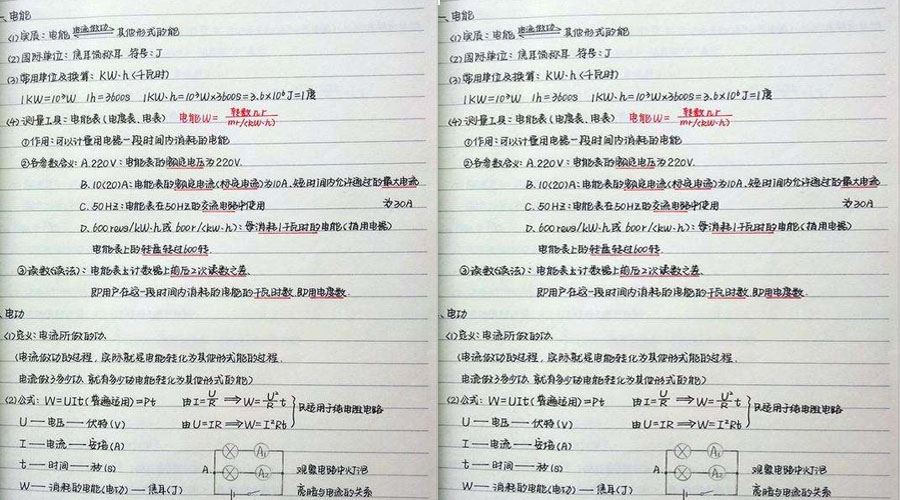 一、电能
(1)实质：电能 电流做功 其他形式的能
(2)国际单位：焦耳 简称耳 符号：J
(3)常用单位及换算：KW·h(千瓦时)
1KW=10³W 1h=3600s 1KW·h=10³W×3600s=3.6×10⁶J=1度
(4)测量工具：电能表(电度表、电表) 电能W= 转数n r / mr/(kW·h)
①作用：可以计量用电器一段时间内消耗的电能
②各参数含义：A.220V：电能表的额定电压为220V.
B.10(20)A：电能表的额定电流(标定电流)为10A.短时间内允许通过的最大电流
为30A
C.50HZ：电能表在50HZ的交流电路中使用
D.600revs/kW·h或600r/(kw·h)：每消耗1千瓦时的电能(指用电器)
电能表上的转盘转过600转.
③读数(读法)：电能表上计数器上前后2次读数之差.
即用户在这一段时间内消耗的电能的千瓦时数.即用电度数.
二、电功
(1)定义：电流所做的功.
(电流做功的过程，实际就是电能转化为其他形式能的过程.
电流做了多少功.就有多少的电能转化为其他形式的能)
(2)公式：W=UIt(普遍适用)=Pt 由I=U/R ⟹W=U²/R t
由U=IR ⟹W=I²Rt
只适用于纯电阻电路
U——电压——伏特(V)
I——电流——安培(A)
t——时间——秒(s)
W——消耗的电能(电功)——焦耳(J)
A₁
A. A₂
观察电路中灯泡
亮暗与电流的关系
一、电能
(1)实质：电能 电流做功 其他形式的能
(2)国际单位：焦耳 简称耳 符号：J
(3)常用单位及换算：KW·h(千瓦时)
1KW=10³W 1h=3600s 1KW·h=10³W×3600s=3.6×10⁶J=1度
(4)测量工具：电能表(电度表、电表) 电能W= 转数n r / mr/(kW·h)
①作用：可以计量用电器一段时间内消耗的电能
②各参数含义：A.220V：电能表的额定电压为220V.
B.10(20)A：电能表的额定电流(标定电流)为10A.短时间内允许通过的最大电流
为30A
C.50HZ：电能表在50HZ的交流电路中使用
D.600revs/kW·h或600r/(kw·h)：每消耗1千瓦时的电能(指用电器)
电能表上的转盘转过600转.
③读数(读法)：电能表上计数器上前后2次读数之差.
即用户在这一段时间内消耗的电能的千瓦时数.即用电度数.
、电功
(1)定义：电流所做的功.
(电流做功的过程，实际就是电能转化为其他形式能的过程.
电流做了多少功.就有多少的电能转化为其他形式的能)
(2)公式：W=UIt(普遍适用)=Pt 由I=U/R ⟹W=U²/R t
由U=IR ⟹W=I²Rt
只适用于纯电阻电路
U——电压——伏特(V)
I——电流——安培(A)
t——时间——秒(s)
W——消耗的电能(电功)——焦耳(J)
A₁
A. A₂
观察电路中灯泡
亮暗与电流的关系